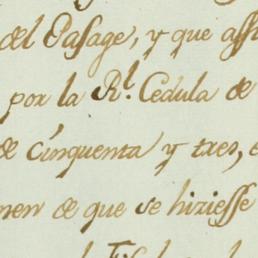 del Pasage, y que assi
por la Rl. Cedula de
de cinquenta y tres, e
men de que se hiziesse